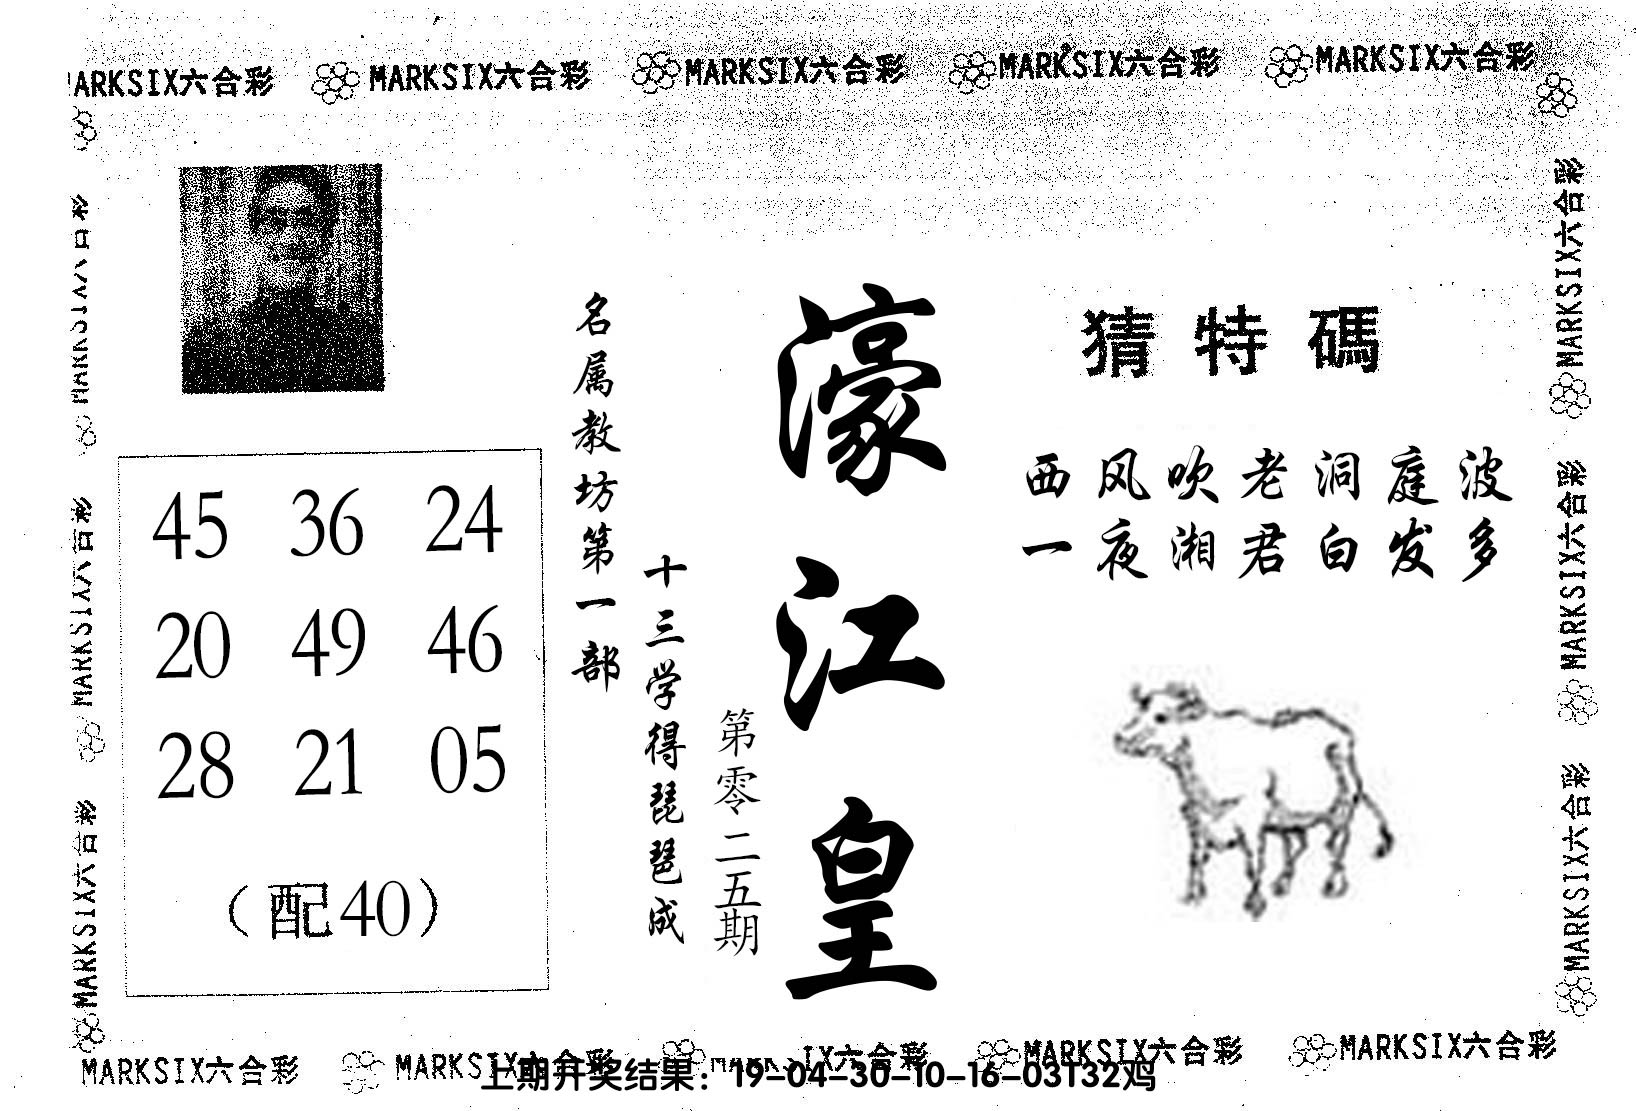 MARKSIX六合彩 MARKSIX六合彩 MARKSIX六合彩 MARKSIX六合彩 MARKSIX六合彩
猜特碼
西风吹老洞庭波
一夜湘君白发多
濠江皇
第零二五期
十三学得琵琶成
名属教坊第一部
45 36 24
20 49 46
28 21 05
（配40）
MARKSIX六合彩
MARKSIX六合彩
MARKSIX六合彩
MARKSIX六合彩
MARKSIX六合彩
MARKSIX六合彩
MARKSIX六合彩 MARKSIX六合彩 MARKSIX六合彩 MARKSIX六合彩 MARKSIX六合彩
上期开奖结果：19-04-30-10-16-03T32鸡